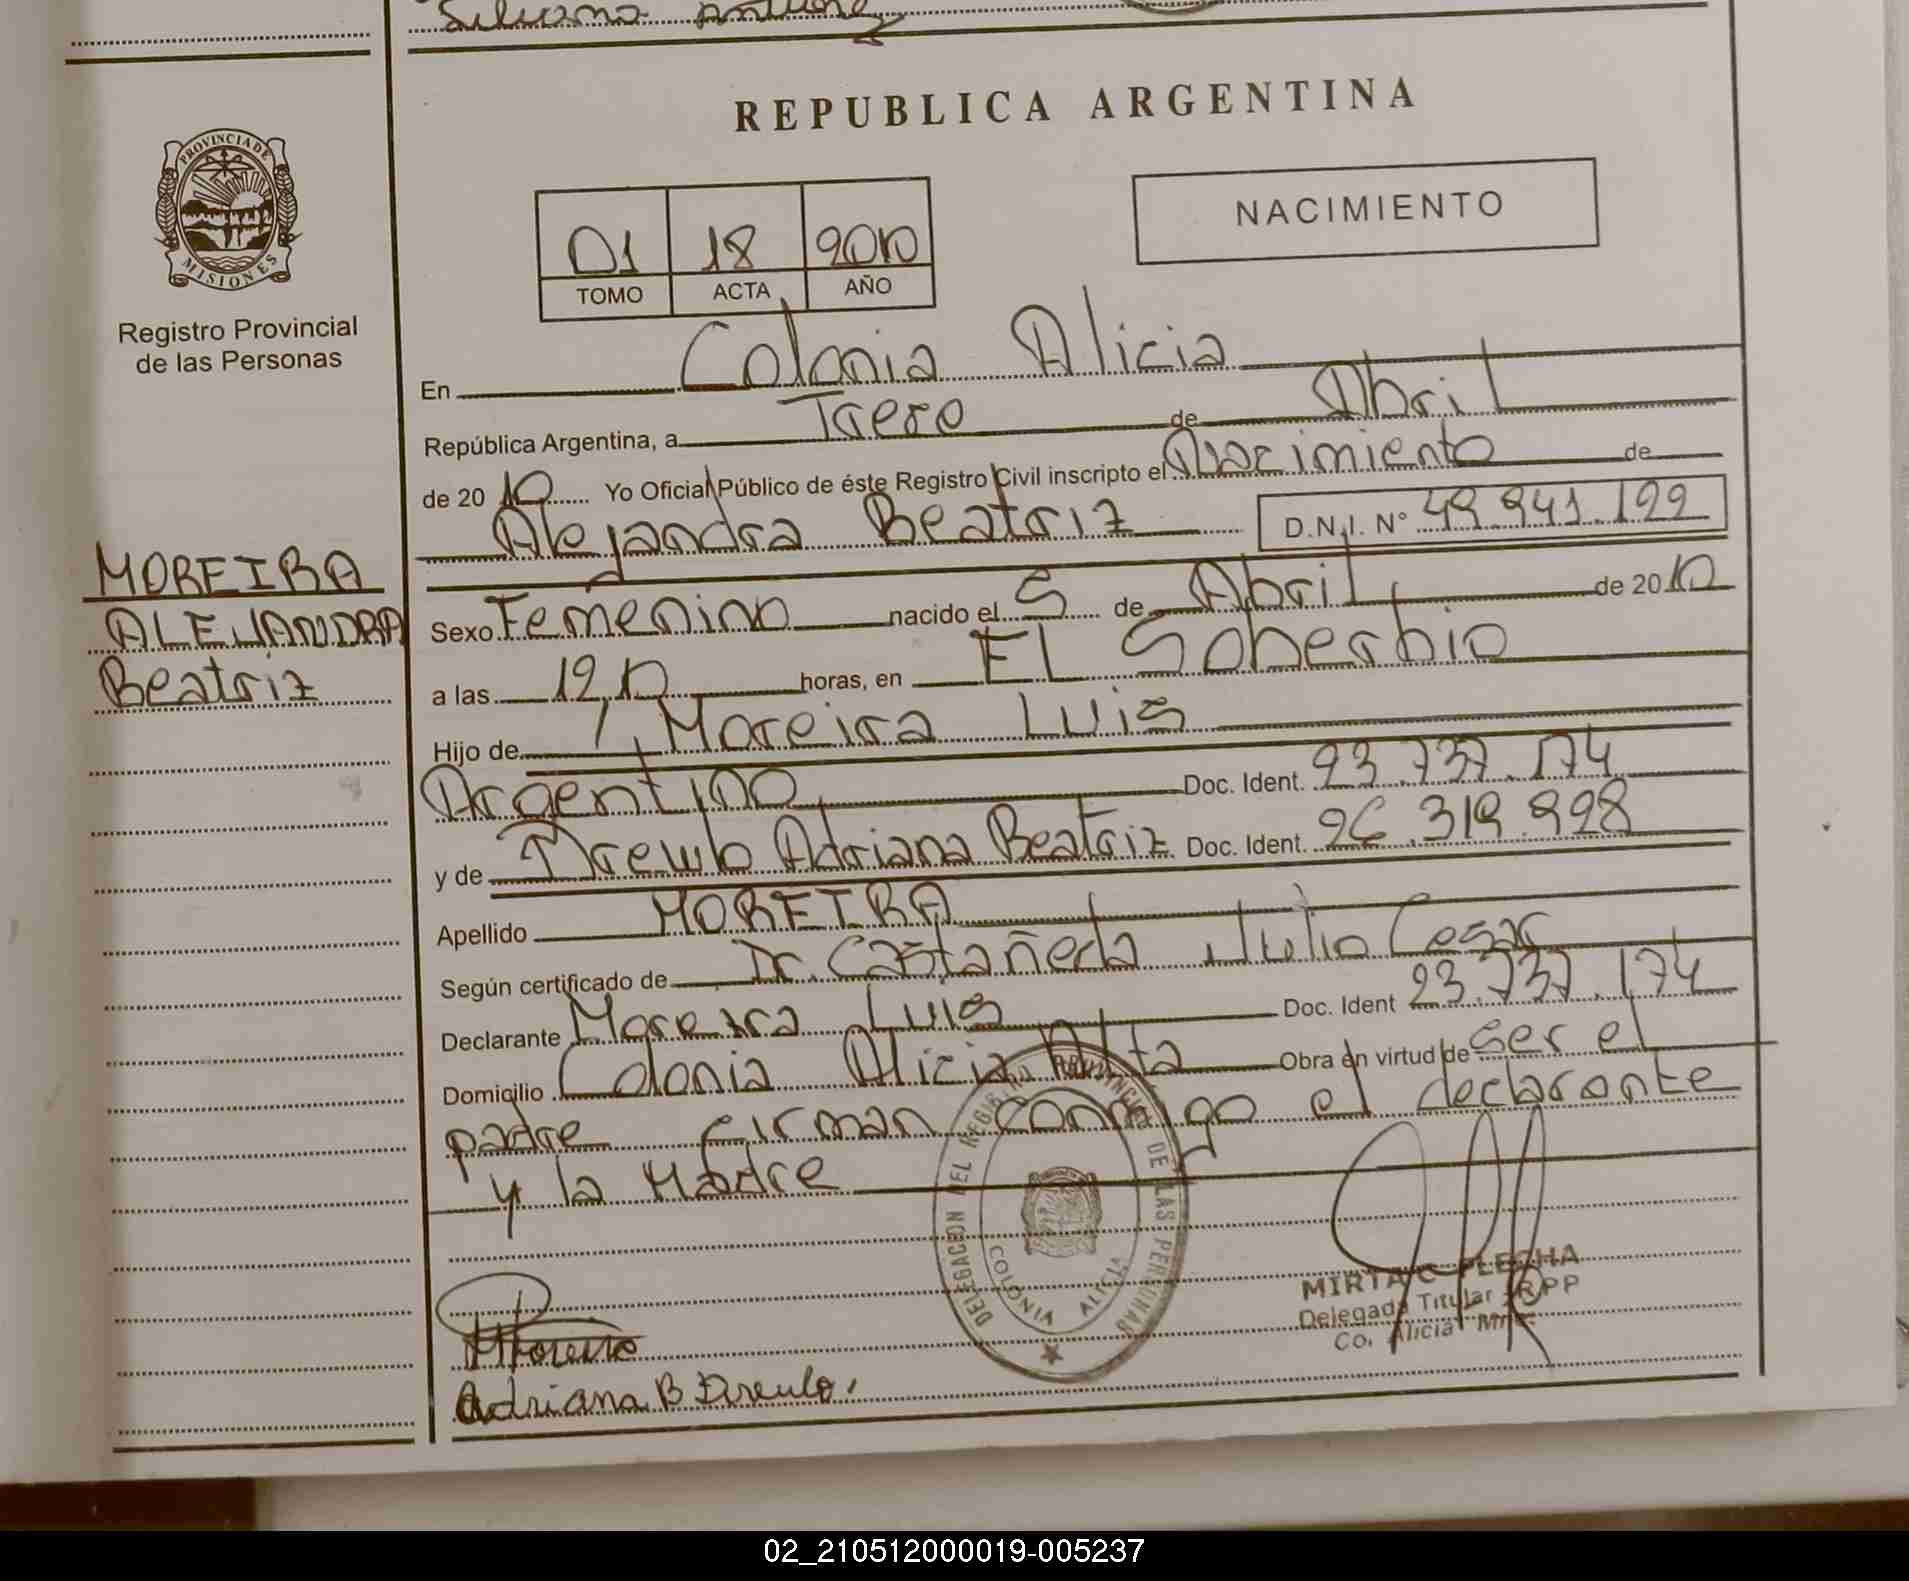 Silvana Antunez
REPUBLICA ARGENTINA
PROVINCIA DE
MISIONES
Registro Provincial
de las Personas
NACIMIENTO
01 18 2010
TOMO ACTA AÑO
En Colonia Alicia
República Argentina, a Trece de Abril
de 20 10 Yo Oficial Público de éste Registro Civil inscripto el Nacimiento de
Alejandra Beatriz D.N.I. Nº 49.941.122
MOREIRA
ALEJANDRA
Beatriz
Sexo Femenino nacido el 5 de Abril de 20 10
a las 12,10 horas, en El Soberbio
Hijo de Moreira Luis
Argentino Doc. Ident. 23.737.174
y de Drewlo Adriana Beatriz Doc. Ident. 26.319.828
Apellido MOREIRA
Según certificado de Dr. Castañeda Julio Cesar
Declarante Moreira Luis Doc. Ident 23.737.174
Domicilio Colonia Alicia Alta Obra en virtud de ser el
padre firman conmigo el declarante
y la Madre
DELEGACION DEL REGISTRO PROVINCIAL DE LAS PERSONAS
COLONIA ALICIA
MIRTA C. PLECHA
Delegada Titular RPP
Co. Alicia Mnes
Moreira
Adriana B Drewlo
02_210512000019-005237